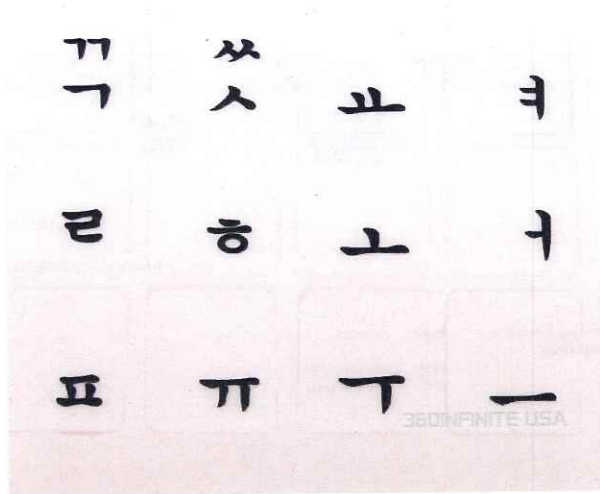 ㄲ ㅆ
ㄱ ㅅ ㅛ ㅕ
ㄹ ㅎ ㅗ ㅓ
ㅍ ㅠ ㅜ ㅡ
360INFINITE USA